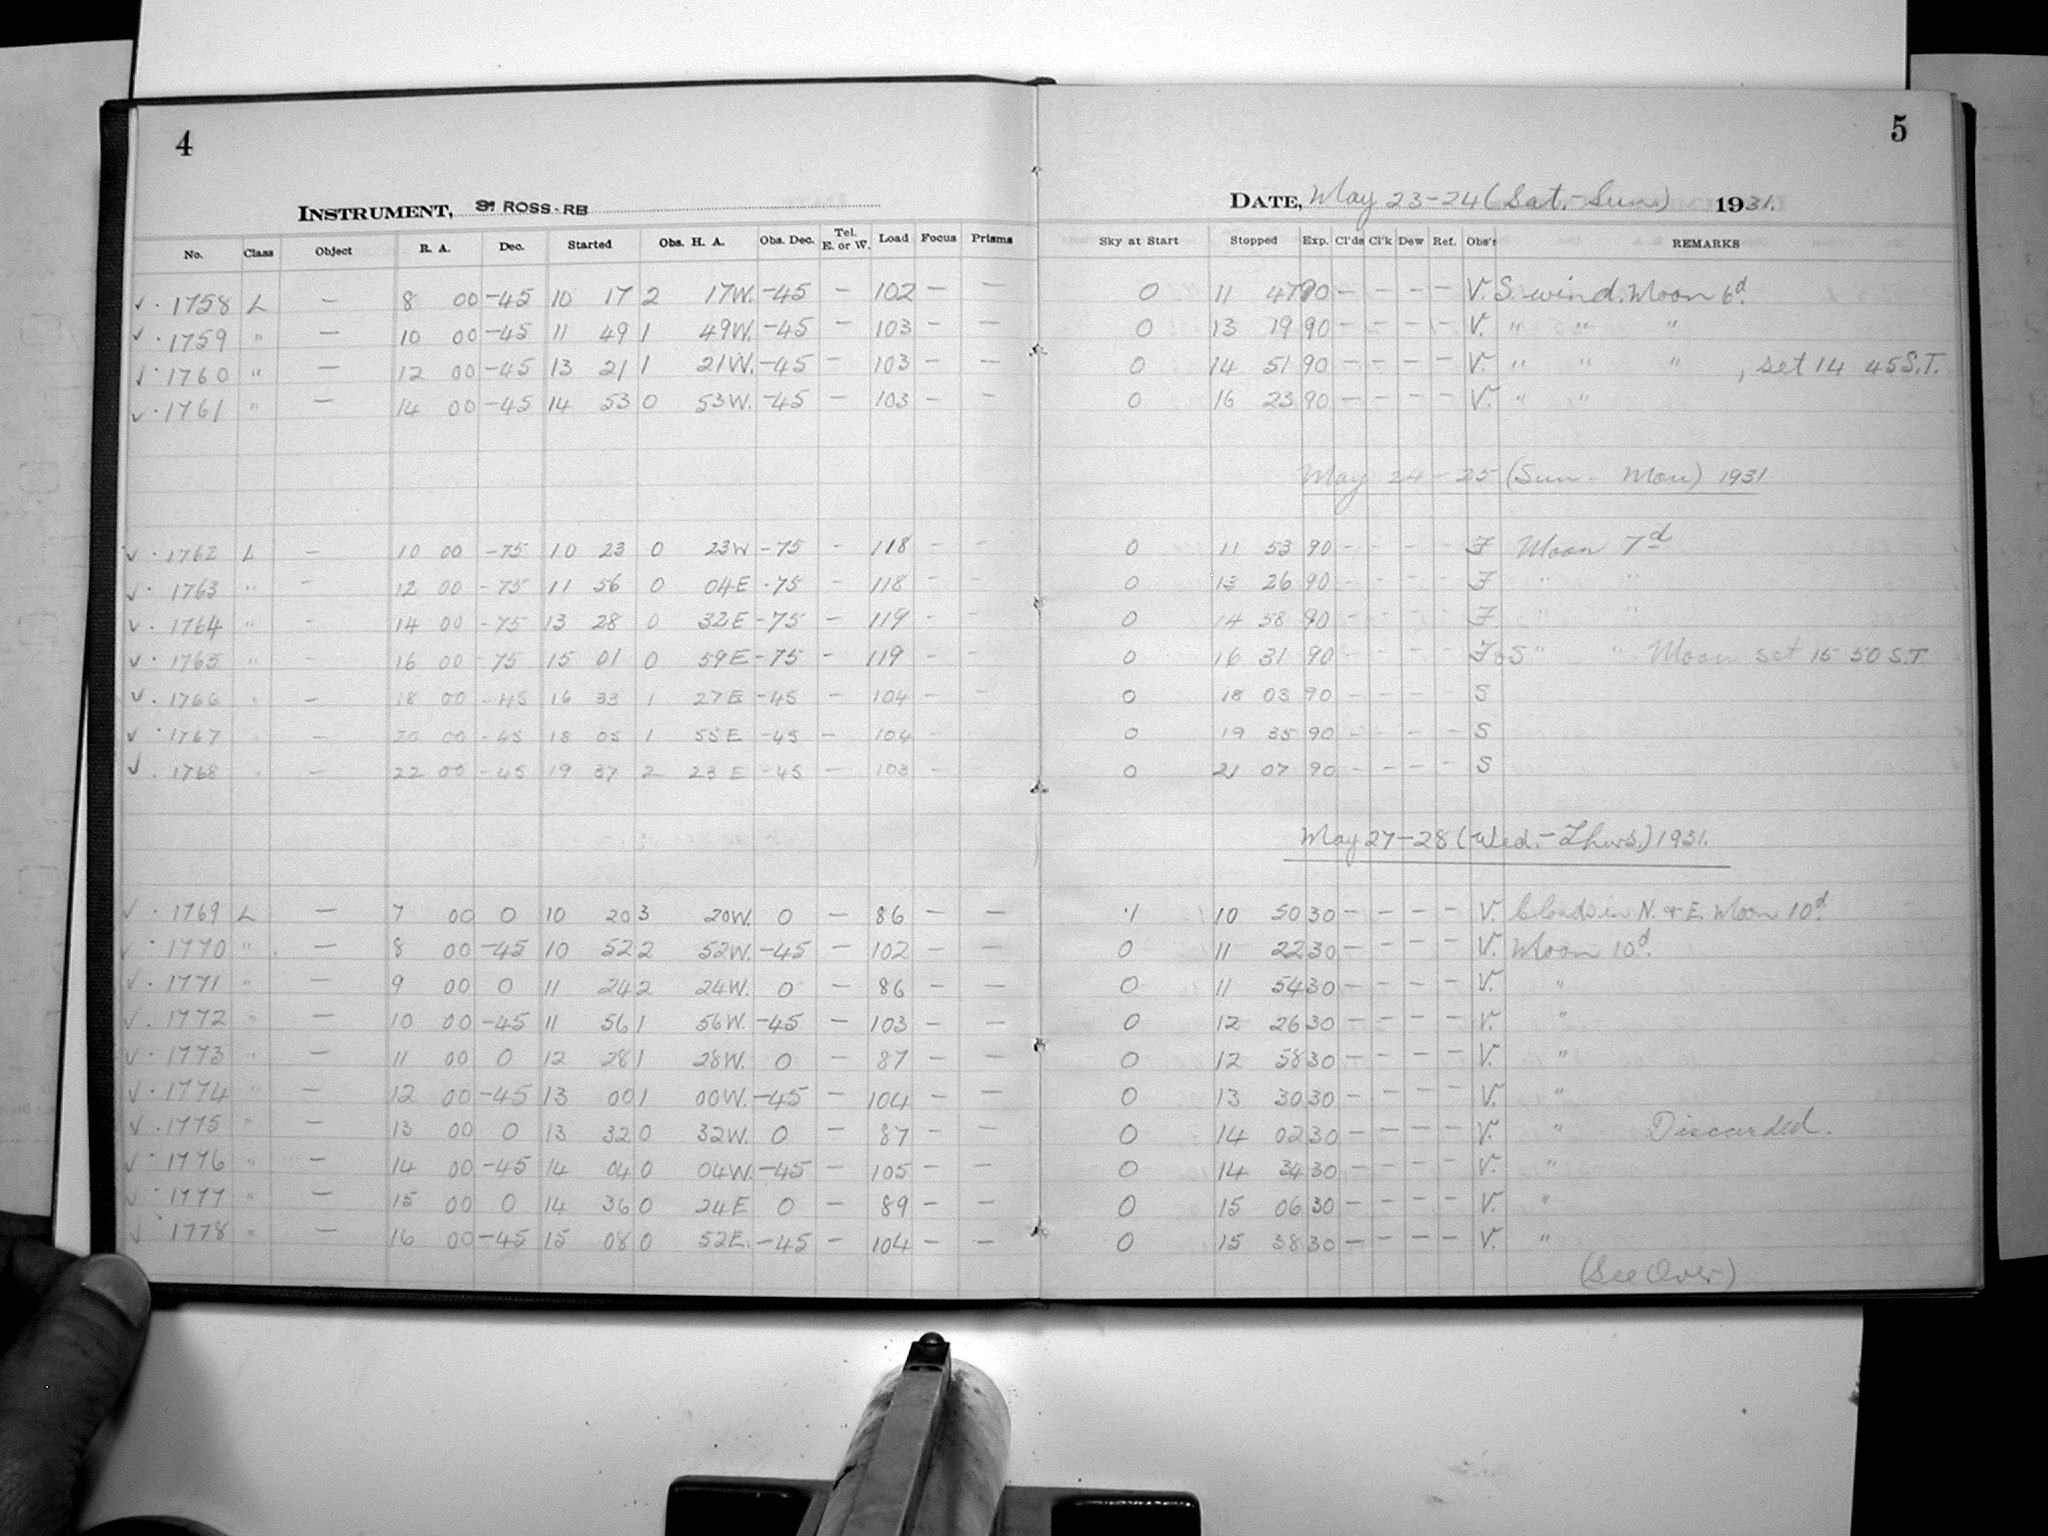 4
5
INSTRUMENT, ROSS-RB
DATE, May 23-24 (Sat.-Sun.) 1931.
No. Class Object R. A. Dec. Started Obs. H. A. Obs. Dec. Tel. E. or W. Load Focus Prisms Sky at Start Stopped Exp. Cl'ds Cl'k Dew Ref. Obs'r REMARKS
✓ · 1758 L — 8 00 -45 10 17 2 17W. -45 — 102 — — 0 11 47 90 — — — — V. S. wind. Moon 6d.
✓ · 1759 " — 10 00 -45 11 49 1 49W. -45 — 103 — — 0 13 19 90 — — — — V. " " "
✓ · 1760 " — 12 00 -45 13 21 1 21W. -45 — 103 — — 0 14 51 90 — — — — V. " " " , set 14 45 S.T.
✓ · 1761 " — 14 00 -45 14 53 0 53W. -45 — 103 — — 0 16 23 90 — — — — V. " "
May 24-25 (Sun - Mon) 1931
✓ · 1762 L — 10 00 -75 10 23 0 23W -75 — 118 — — 0 11 53 90 — — — — F Moon 7d
✓ · 1763 " — 12 00 -75 11 56 0 04E -75 — 118 — — 0 13 26 90 — — — — F " "
✓ · 1764 " — 14 00 -75 13 28 0 32E -75 — 119 — — 0 14 58 90 — — — — F " "
✓ · 1765 " — 16 00 -75 15 01 0 59E -75 — 119 — — 0 16 31 90 — — — — F&S " " Moon set 15 50 S.T
✓ · 1766 " — 18 00 -45 16 33 1 27E -45 — 104 — — 0 18 03 90 — — — — S
✓ · 1767 " — 20 00 -45 18 05 1 55E -45 — 104 — — 0 19 35 90 — — — — S
✓ · 1768 " — 22 00 -45 19 37 2 23E -45 — 103 — — 0 21 07 90 — — — — S
May 27-28 (Wed.-Thurs.) 1931.
✓ · 1769 L — 7 00 0 10 20 3 20W. 0 — 86 — — .1 10 50 30 — — — — V. Clouds in N. & E. Moon 10d.
✓ · 1770 " — 8 00 -45 10 52 2 52W. -45 — 102 — — 0 11 22 30 — — — — V. Moon 10d.
✓ · 1771 " — 9 00 0 11 24 2 24W. 0 — 86 — — 0 11 54 30 — — — — V. "
✓ · 1772 " — 10 00 -45 11 56 1 56W. -45 — 103 — — 0 12 26 30 — — — — V. "
✓ · 1773 " — 11 00 0 12 28 1 28W. 0 — 87 — — 0 12 58 30 — — — — V. "
✓ · 1774 " — 12 00 -45 13 00 1 00W. -45 — 104 — — 0 13 30 30 — — — — V. "
✓ · 1775 " — 13 00 0 13 32 0 32W. 0 — 87 — — 0 14 02 30 — — — — V. " Discarded.
✓ · 1776 " — 14 00 -45 14 04 0 04W. -45 — 105 — — 0 14 34 30 — — — — V. "
✓ · 1777 " — 15 00 0 14 36 0 24E 0 — 89 — — 0 15 06 30 — — — — V. "
✓ · 1778 " — 16 00 -45 15 08 0 52E. -45 — 104 — — 0 15 38 30 — — — — V. "
(See Over)